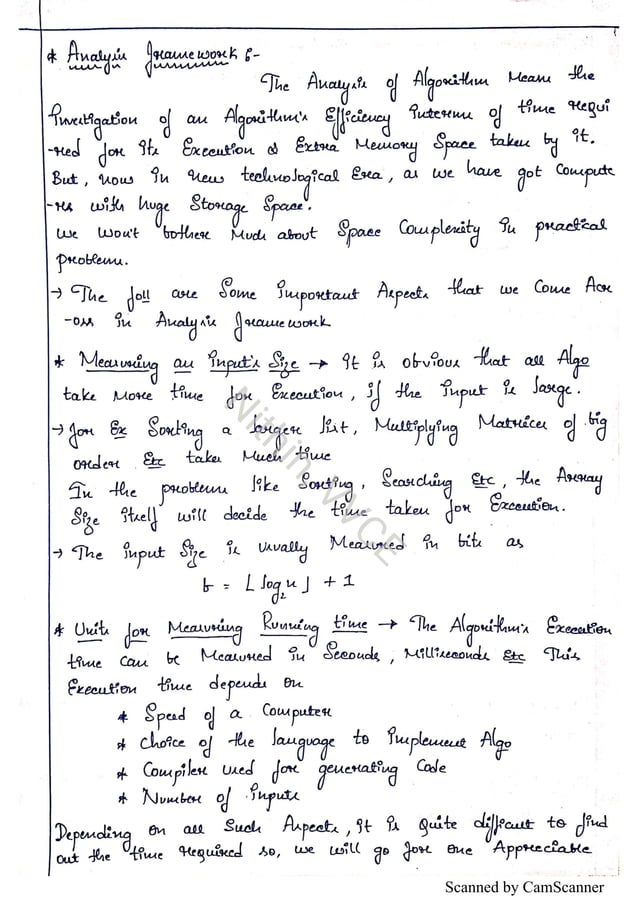 * Analysis Framework :-
The Analysis of Algorithm Means the
Investigation of an Algorithm's Efficiency Interms of time requi
-red for its Execution & Extra Memory Space taken by it.
But, now in new technological Era, as we have got Compute
-rs with huge Storage Space.
We Won't bother Much about Space Complexity in practical
problems.
→ The foll are Some Important Aspects that we Come Acr
-oss in Analysis Framework
* Measuring an Input's Size → It is obvious that all Algo
take More time for Execution, if the Input is large.
→ for Ex Sorting a larger list, Multiplying Matrices of big
order Etc takes Much time
In the problems like Sorting, Searching Etc, the Array
Size itself will decide the time taken for Execution.
→ The input Size is usually Measured in bits as
b = ⌊ log₂n ⌋ + 1
* Units for Measuring Running time → The Algorithm's Execution
time can be Measured in Seconds, Milliseconds Etc This
Execution time depends on
* Speed of a Computer
* Choice of the language to Implement Algo
* Compiler used for generating Code
* Number of Inputs
Depending on all Such Aspects, it is Quite difficult to find
out the time required so, we will go for one Appreciable
Nithin, VVCE
Scanned by CamScanner